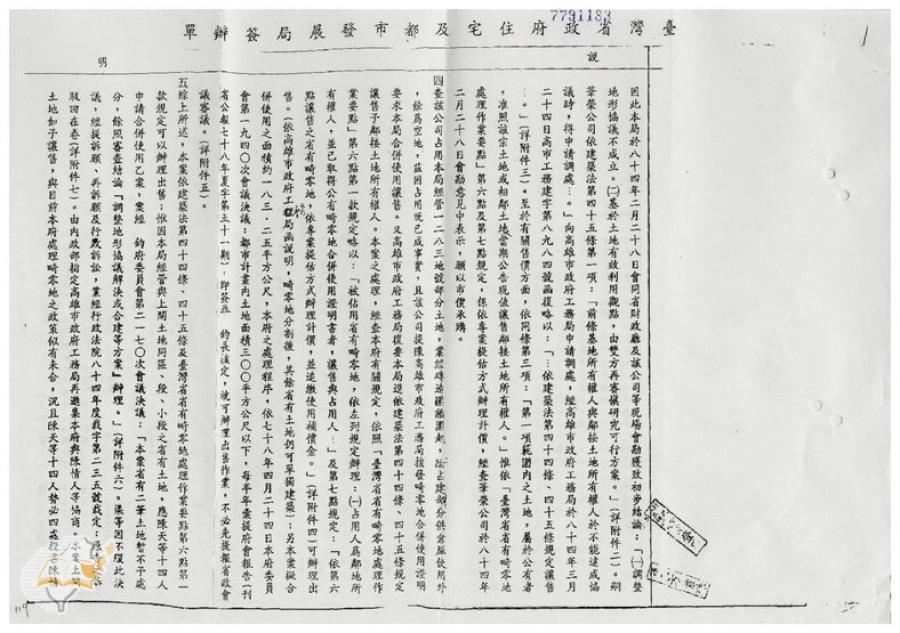 7791183
臺灣省政府住宅及都市發展局簽辦單
說
明
因此本局於八十四年二月二十八日會同省財政廳及該公司等現場會勘獲致初步結論：「㈠調整
地形協議不成立。㈡基於土地有效利用觀點，由雙方再審慎研究可行方案。」（詳附件二）。嗣
華榮公司依建築法第四十五條第一項：「前條基地所有權人與鄰接土地所有權人於不能達成協
議時，得申請調處…。」向高雄市政府工務局申請調處，經高雄市政府工務局於八十四年三月
二十四日高市工務建字第八九八四號函復略以：「…依建築法第四十四條、四十五條規定讓售
…。」（詳附件三）。至於有關售價方面，依同條第三項：「第一項範圍內之土地，屬於公有者
，准照該宗土地或相鄰土地當期公告現值讓售鄰接土地所有權人。」惟依「臺灣省省有畸零地
處理作業要點」第六點及第七點規定，係依專案提估方式辦理計價，經查華榮公司於八十四年
二月二十八日會勘意見中表示，願以市價承購。
四查該公司占用本局經管一二八三地號部分土地，業經磚造圍牆圍起，除占建部分供倉庫使用外
，餘為空地，茲因占用既已成事實，且該公司提據高雄市政府工務局核發畸零地合併使用證明
要求本局合併使用讓售。又高雄市政府工務局復要本局逕依建築法第四十四條、四十五條規定
讓售予鄰接土地所有權人。本案之處理，經查本府有關規定，依照「臺灣省省有畸零地處理作
業要點」第六點第一款規定略以：「被佔用省有畸零地，依左列規定辦理：㈠占用人為鄰地所
有權人，並已取得公有畸零地合併使用證明書者，讓售與占用人…」及第七點規定：「依第六
點讓售之省有畸零地，依專案提估方式辦理計價，並追繳使用補償金。」（詳附件四）可辦理出
售。（依高雄市政府工務局函說明，畸零地分割後，其餘省有土地仍可單獨建築）；另本案擬合
併使用之面積約一八三·二五平方公尺，本府之處理程序，依七十八年四月二十四日本府委員
會第一九四〇次會議決議：都市計畫內土地面積三〇〇平方公尺以下，每半年彙提府會報告（刊
省公報七十八年夏字第五十一期），即簽並　鈞長核定，就可辦理出售作業，不必先提報省政會
議審議。（詳附件五）。
五綜上所述，本案依建築法第四十四條、四十五條及臺灣省省有畸零地處理作業要點第六點第一
款規定可以辦理出售；惟本局經管與上開土地同區、段、小段之省有土地，應陳天等十四人
申請合併使用乙案，案經　鈞府委員會第二一七〇次會議決議：「本案省有二筆土地暫不處
分，餘照審查結論「調整地形協議解決或合建等方案」辦理。」（詳附件六）。渠等因不服此決
議，經提訴願、再訴願及行政訴訟，業經行政法院八十四年度裁字第二三五號裁定：
駁回在卷（詳附件七）。由內政部指定高雄市政府工務局再邀集本府與陳情人等協商。本案上開
土地如予讓售，與目前本府處理畸零地之政策似有未合，況且陳天等十四人勢必